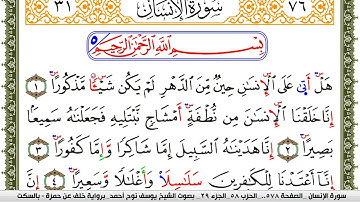 ٣١ سُورَةُ الْإِنْسَانِ ٧٦
بِسْمِ اللَّهِ الرَّحْمَٰنِ الرَّحِيمِ ٥
هَلْ أَتَىٰ عَلَى الْإِنسَانِ حِينٌ مِّنَ الدَّهْرِ لَمْ يَكُن شَيْئًا مَّذْكُورًا ١
إِنَّا خَلَقْنَا الْإِنسَانَ مِن نُّطْفَةٍ أَمْشَاجٍ نَّبْتَلِيهِ فَجَعَلْنَاهُ سَمِيعًا
بَصِيرًا ٢ إِنَّا هَدَيْنَاهُ السَّبِيلَ إِمَّا شَاكِرًا وَإِمَّا كَفُورًا ٣
إِنَّا أَعْتَدْنَا لِلْكَافِرِينَ سَلَاسِلَا وَأَغْلَالًا وَسَعِيرًا ٤ إِنَّ
سورة الإنسان ..الصفحة ٥٧٨.. الحزب ٥٨ ..الجزء ٢٩ ..بصوت الشيخ يوسف نوح أحمد ..برواية خلف عن حمزة - بالسكت